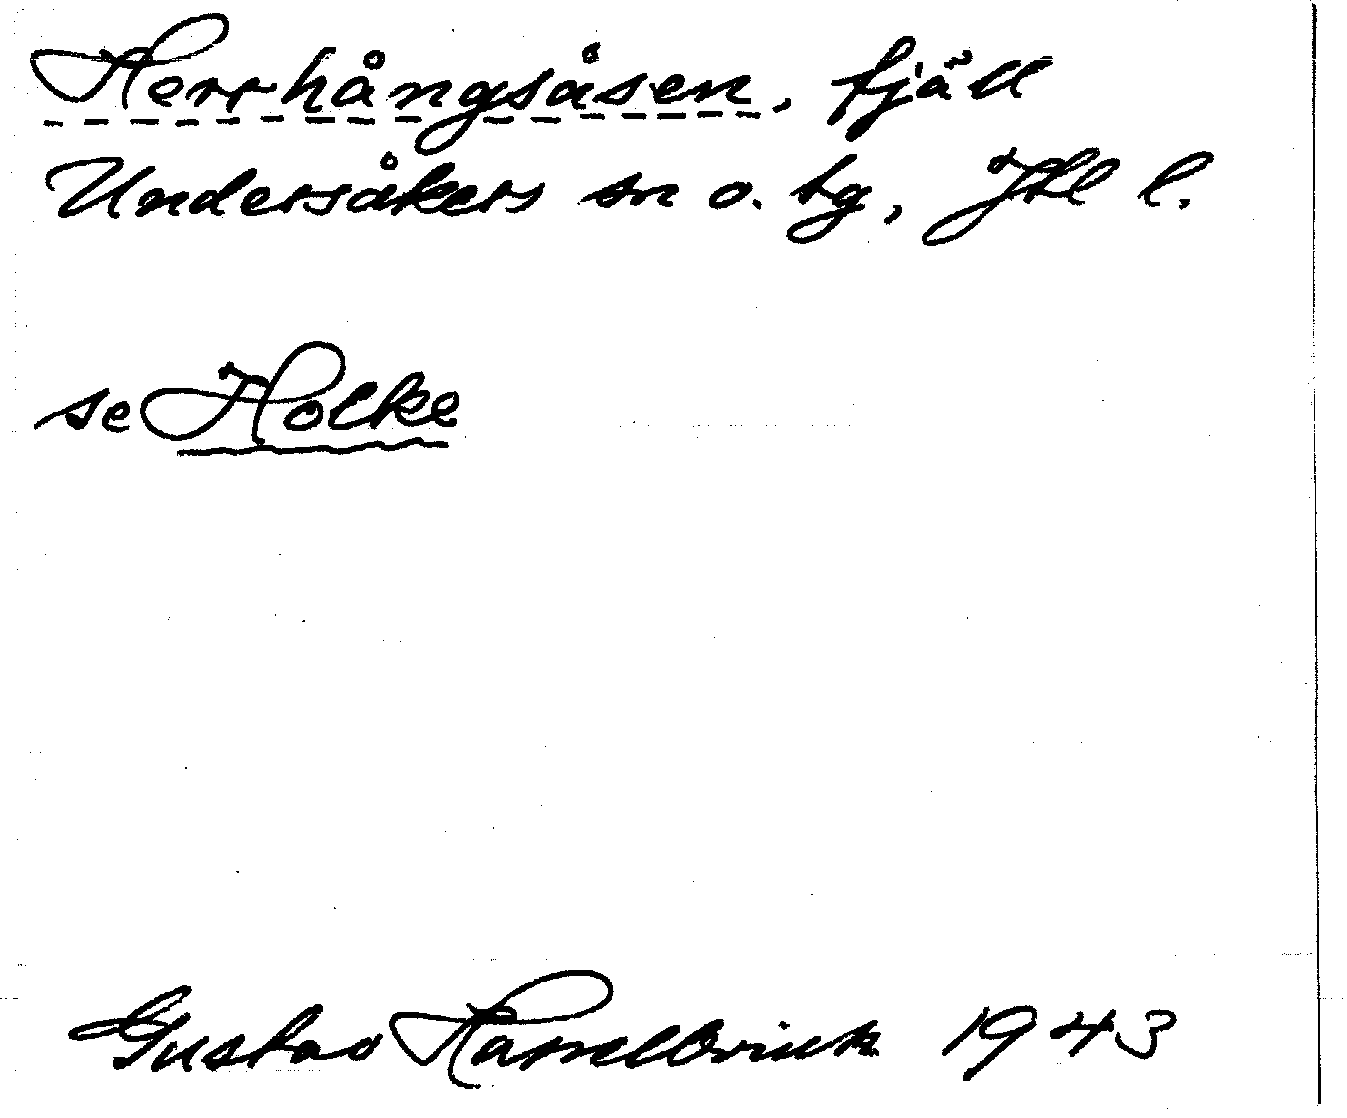 Herrhångsåsen, fjäll
Undersåkers sn o. tg, Jtl l.
se Holke
Gustav Hasselbrink 1943